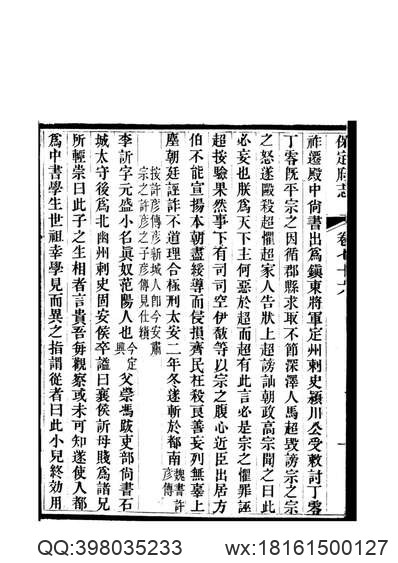 保定府志 卷七十六 一
祚遷殿中尚書出為鎮東將軍定州刺史潁川公受敕討丁零
丁零既平宗之因循郡縣求取不節深澤人馬超毀謗宗之宗
之怒遂毆殺超懼超家人告狀上超謗訕朝政高宗聞之曰此
必妄也朕為天下主何惡於超而超有此言必是宗之懼罪誣
超按驗果然事下有司司空伊馛等以宗之腹心近臣出居方
伯不能宣揚本朝盡綏導而侵損齊民枉殺良善妄列無辜上
塵朝廷誣詐不道理合極刑太安二年冬遂斬於都南魏書許彥傳
按許彥傳彥新城人即今安肅
宗之許彥之子彥傳見仕績
李訢字元盛小名真奴范陽人也今定興父崇馮跋吏部尚書石
城太守後為北幽州刺史固安侯卒諡曰襄侯訢母賤為諸兄
所輕崇曰此子之生相者言貴吾每觀察或未可知遂使人都
為中書學生世祖幸學見而異之指謂從者曰此小兒終効用
QQ:398035233 wx:18161500127